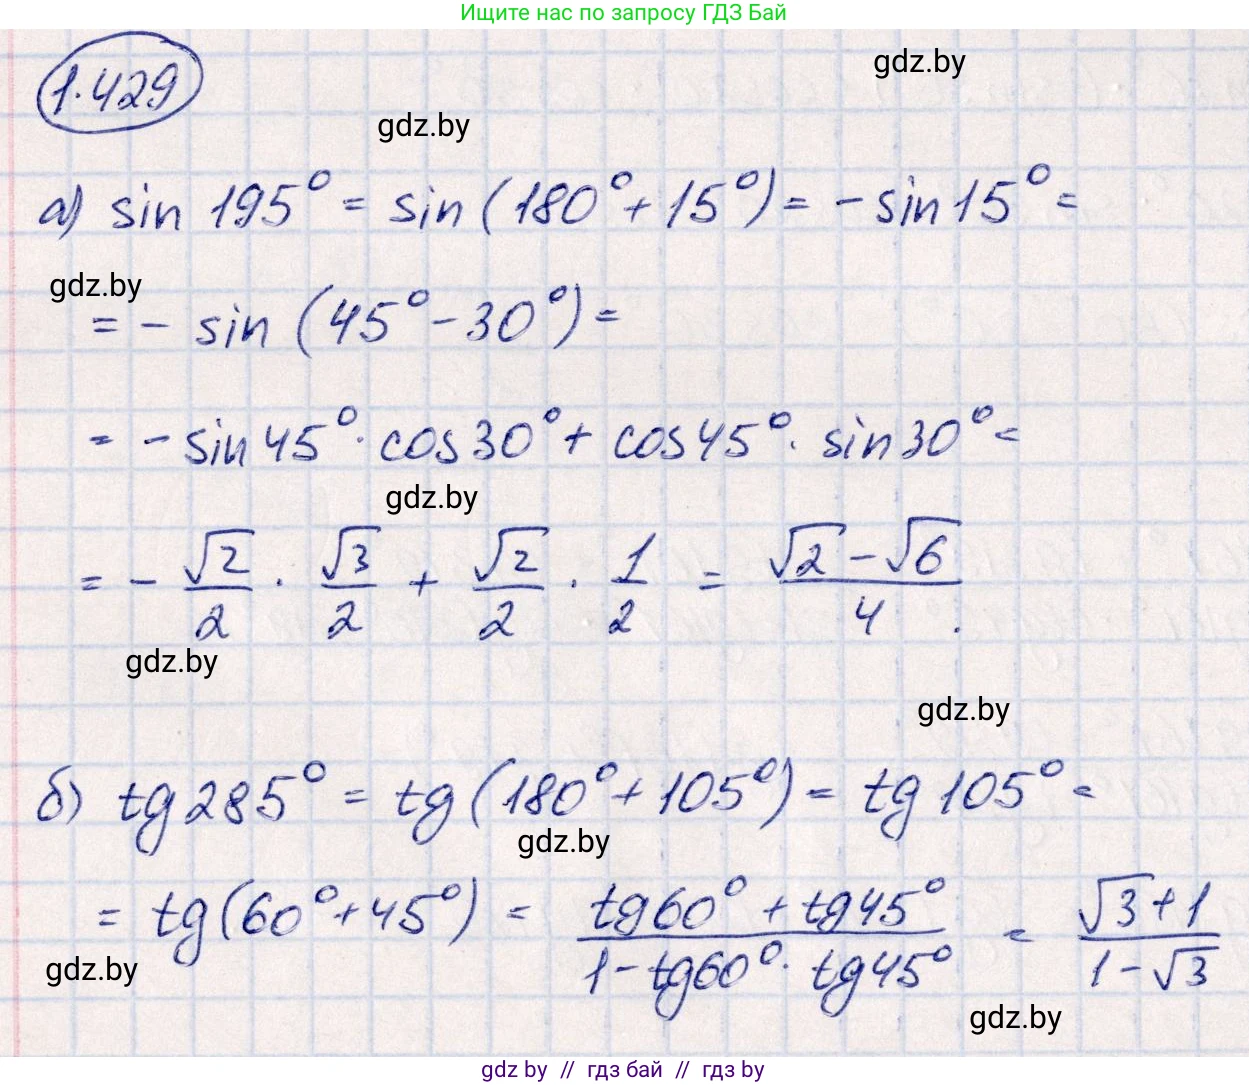 Ищите нас по запросу ГДЗ Бай
gdz.by
1.429
gdz.by
а) sin 195° = sin (180° + 15°) = - sin 15° =
gdz.by
= - sin (45° - 30°) =
= - sin 45° · cos 30° + cos 45° · sin 30° =
gdz.by
= - √2/2 · √3/2 + √2/2 · 1/2 = (√2 - √6)/4 .
gdz.by
gdz.by
б) tg 285° = tg (180° + 105°) = tg 105° =
gdz.by
= tg (60° + 45°) = (tg 60° + tg 45°)/(1 - tg 60° · tg 45°) = (√3 + 1)/(1 - √3)
gdz.by
gdz.by
gdz by // гдз бай // гдз by